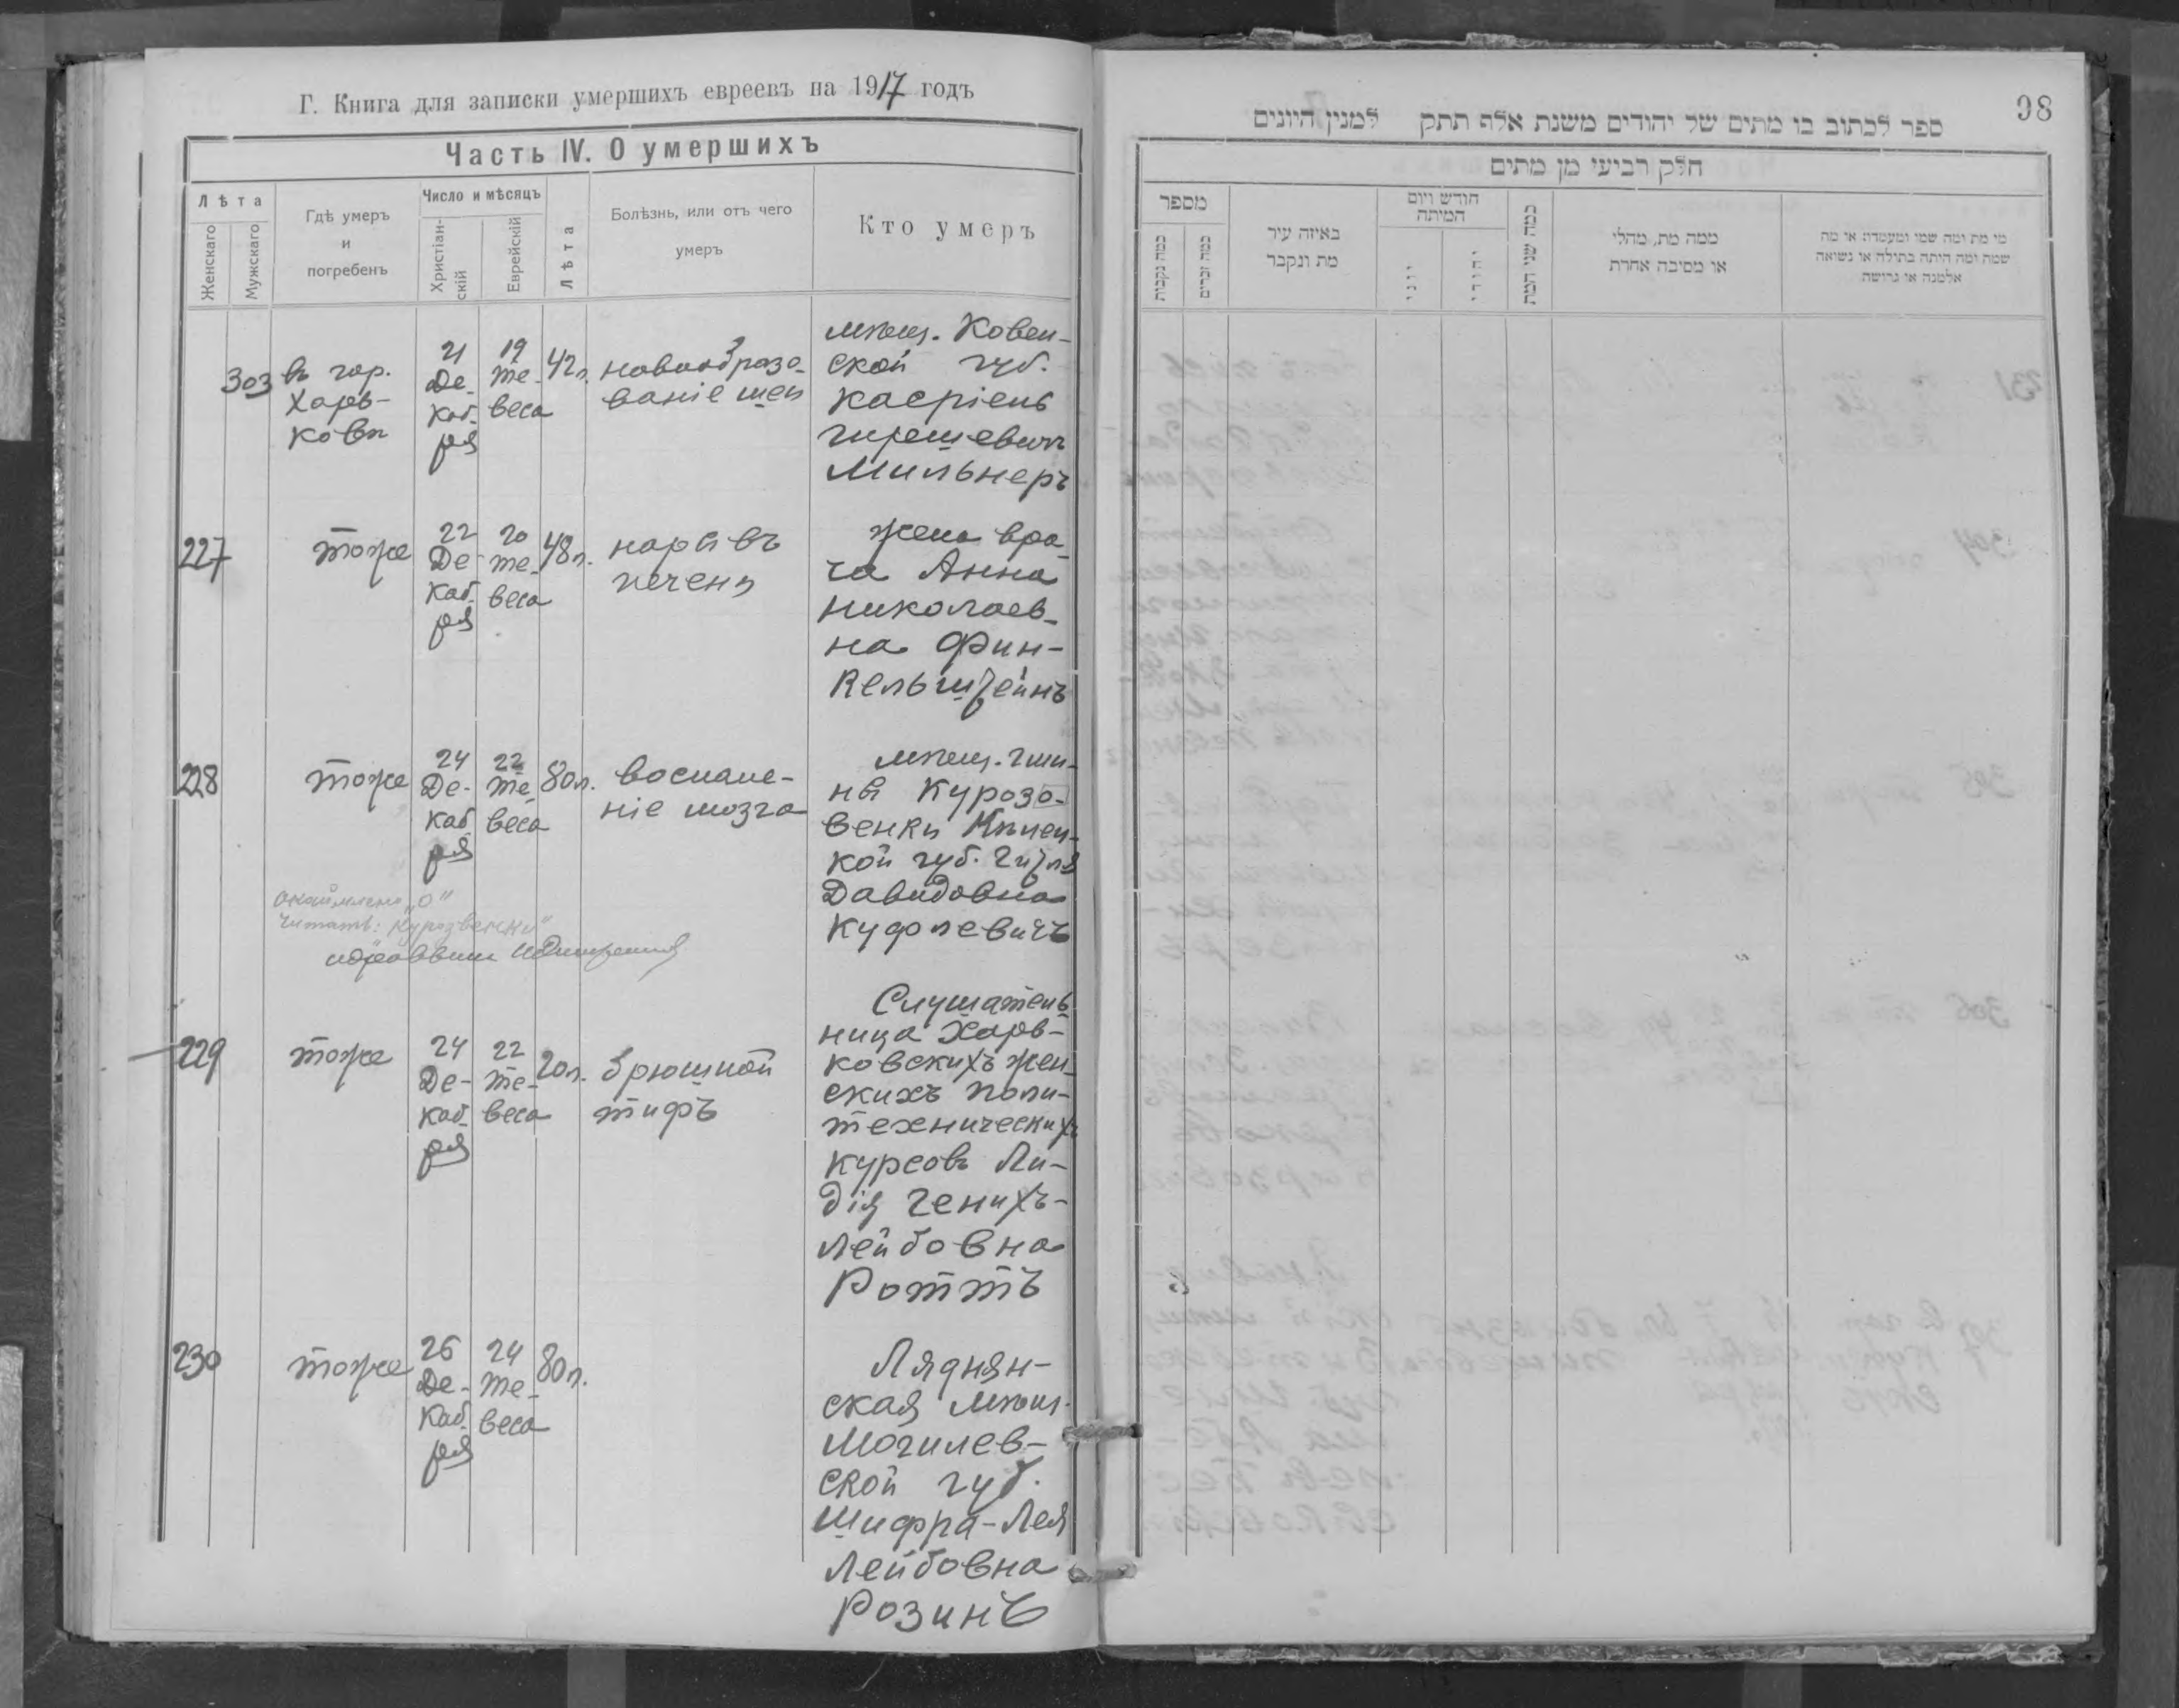 Г. Книга для записки умершихъ евреевъ на 1917 годъ
Часть IV. О умершихъ
Лѣта
Женскаго
Мужскаго
Гдѣ умеръ
и
погребенъ
Число и мѣсяцъ
Христіан-
скій
Еврейскій
Лѣта
Болѣзнь, или отъ чего
умеръ
Кто умеръ
303
въ гор.
Харь-
ковѣ
21
Де-
каб-
ря
19
Те-
веса
42 л.
новообразо-
ваніе шеи
мѣщ. Ковен-
ской губ.
Касріель
Гиршевичъ
Мильнеръ
227
тоже
22
Де-
каб-
ря
20
Те-
веса
48 л.
нарывъ
печени
Жена вра-
ча Анна
Николаев-
на Фин-
кельштейнъ
228
тоже
24
Де-
каб-
ря
22
Те-
веса
80 л.
воспале-
ніе мозга
мѣщ.
Курозо-
венки
кой губ.
Давидовна
Куфлевичъ
"О"
читать: Курозвенки
229
тоже
24
Де-
каб-
ря
22
Те-
веса
20 л.
брюшной
тифъ
Слушатель-
ница Харь-
ковскихъ жен-
скихъ поли-
техническихъ
курсовъ Ли-
дія Генихъ-
Лейбовна
Роттъ
230
тоже
26
Де-
каб-
ря
24
Те-
веса
80 л.
Ляднян-
ская мѣщ.
Могилев-
ской губ.
Шифра-Лея
Лейбовна
Розинъ
98
ספר לכתוב בו מתים של יהודים משנת אלף תתק למנין היונים
חלק רביעי מן מתים
מספר
כמה נקבות
כמה זכרים
באיזה עיר
מת ונקבר
חודש ויום
המיתה
יוני
יהודי
כמה שני המת
ממה מת, מחלי
או מסיבה אחרת
מי מת ומה שמו ומעמדו או מה
שמה ומה היתה בתולה או נשואה
אלמנה או גרושה